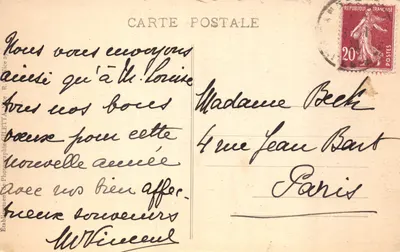 CARTE POSTALE
Nous vous envoyons
ainsi qu'à M. Louise
tous nos bons
vœux pour cette
nouvelle année
avec nos bien affec-
tueux souvenirs
MVincent
Madame Beck
4 rue Jean Bart
Paris
REPUBLIQUE FRANÇAISE
20c
POSTES